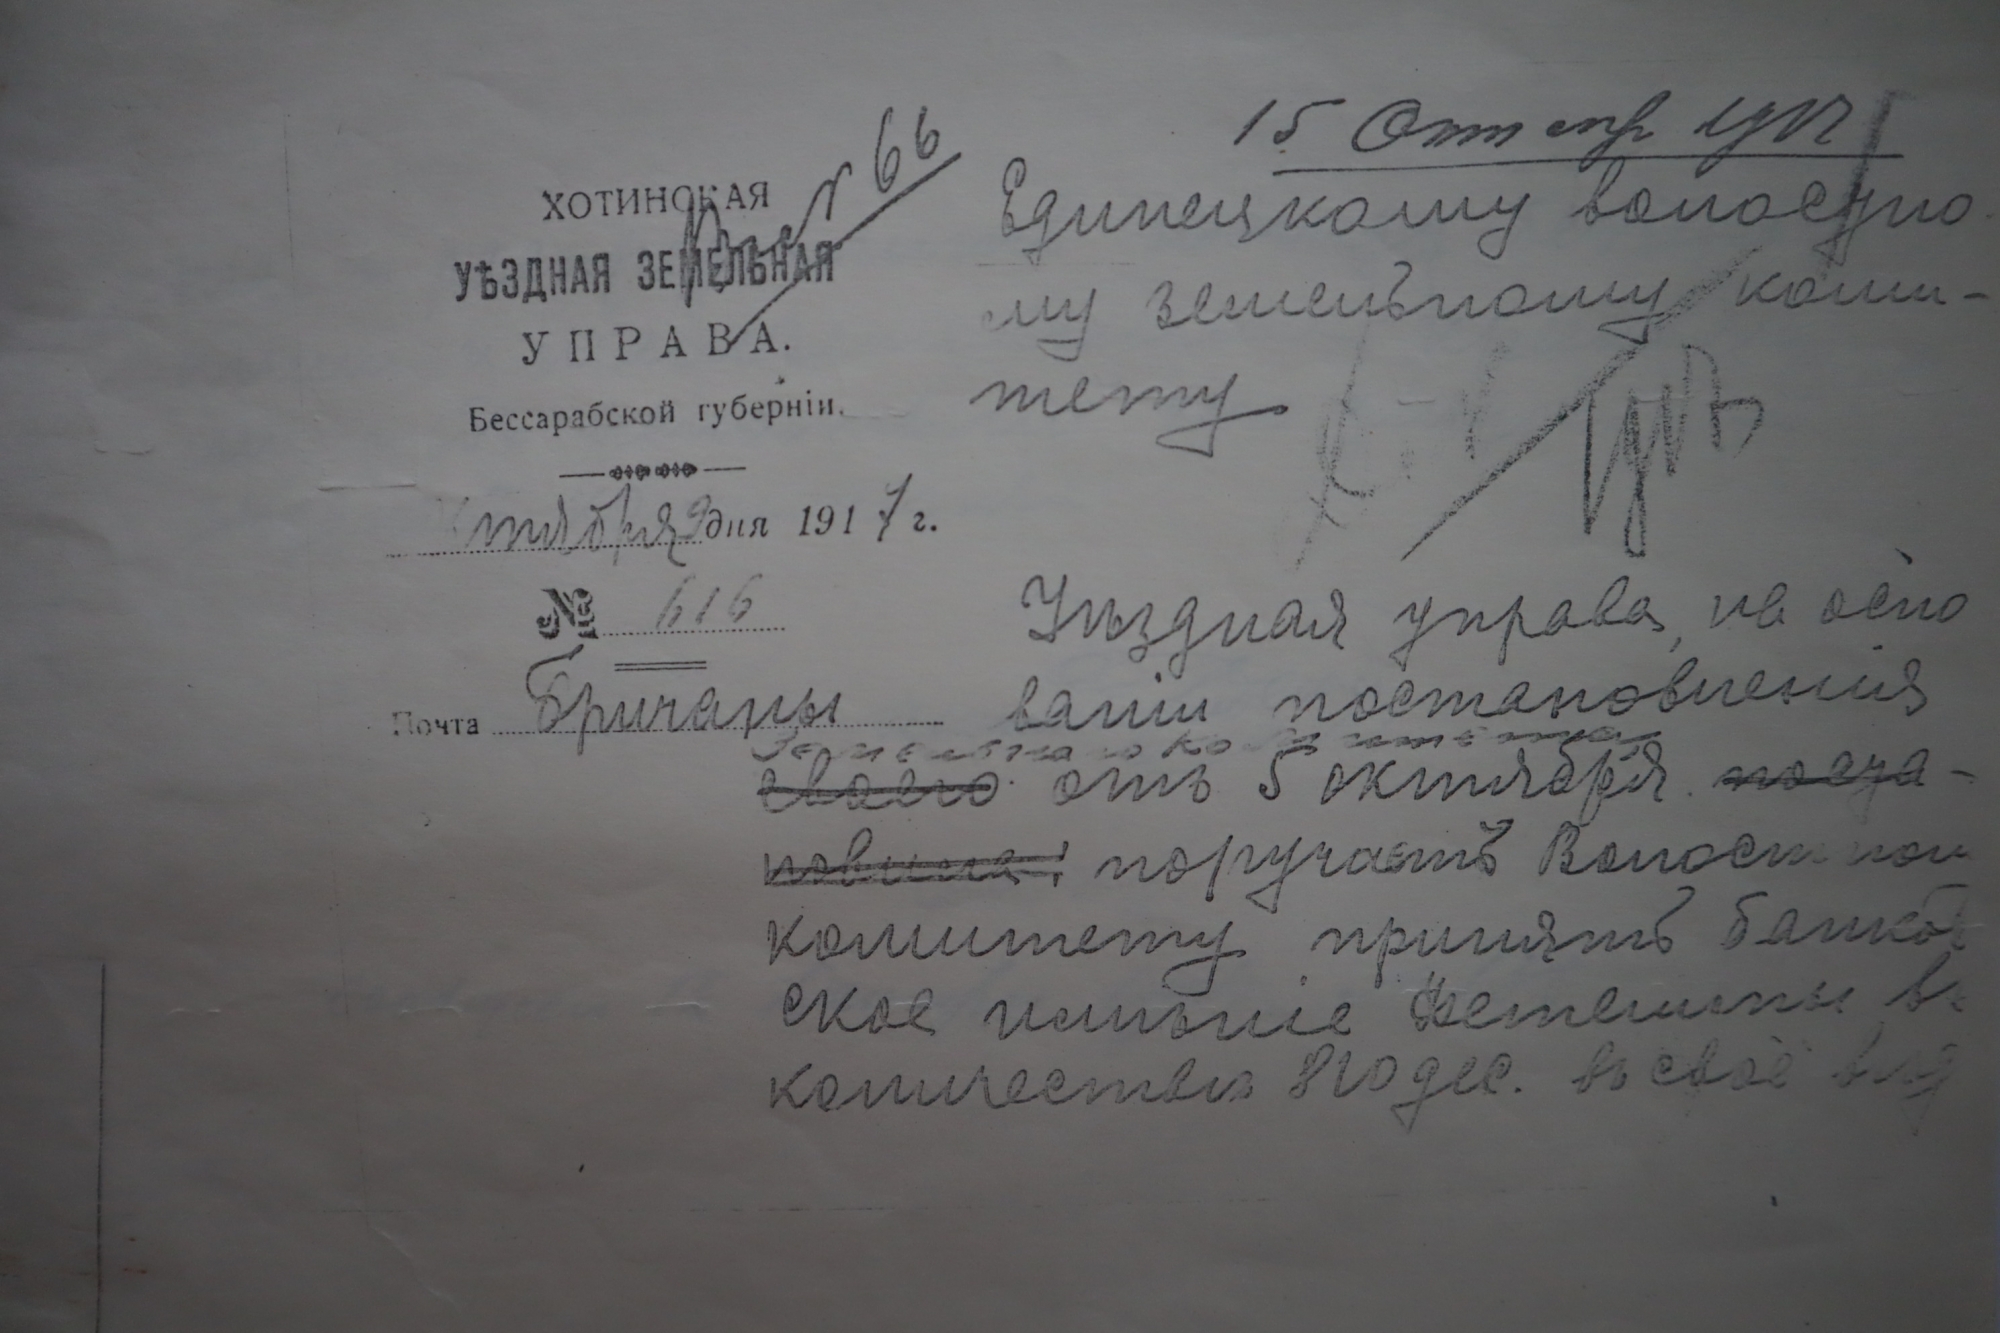 15 Октяр 1917
Вх № 66
ХОТИНСКАЯ
УѢЗДНАЯ ЗЕМЕЛЬНАЯ
УПРАВА.
Бессарабской губерніи.
ктября 9 дня 1917 г.
№ 616
Почта Бричаны
Единецкому волостно
му земельному коми-
тету
Уѣздная управа, на осно
ваніи постановленія
Земельнаго Комитета
своего отъ 5 октября поста-
новила: поручаетъ Волостном
комитету принять банков
ское имѣніе
количествѣ 810 дес. въ своё вѣд